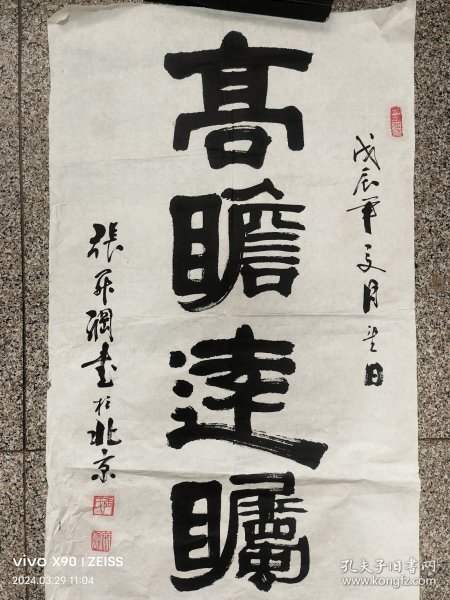 髙瞻遠矚
戊辰年 月 日
張 書於北京
vivo X90 | ZEISS
2024.03.29 11:04
孔夫子旧书网
www.kongfz.com